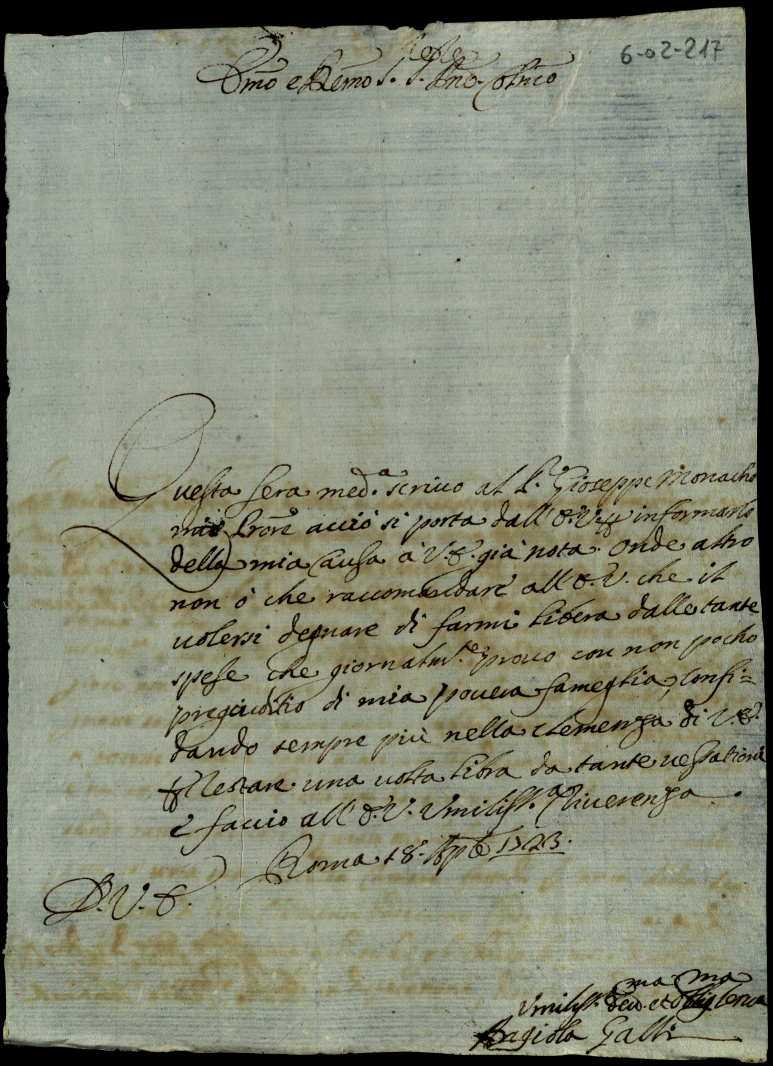 6-02-217
Emo e Remo S. S. Pne. Colmo
Questa sera med.a scrivo al S.r Gioseppe Monacho
mio Pron. acciò si porta dall' E.V. informarlo
della mia causa à V.E. già nota. Onde altro
non ò che raccomandare all E.V. che il
volersi degnare di farmi libera dalle tante
spese che giornalm.te provo con non pocho
pregiuditio di mia povera fameglia, Confi=
dando sempre più nella clemenza di V.E.
restare una volta libra da tante vessationi
e faccio all' E.V. Umiliss.a Riverenza.
Roma 18. 1723.
D. V. E.
Umiliss.ma Dev. et Oblig.ma Serva
Angiola Galli